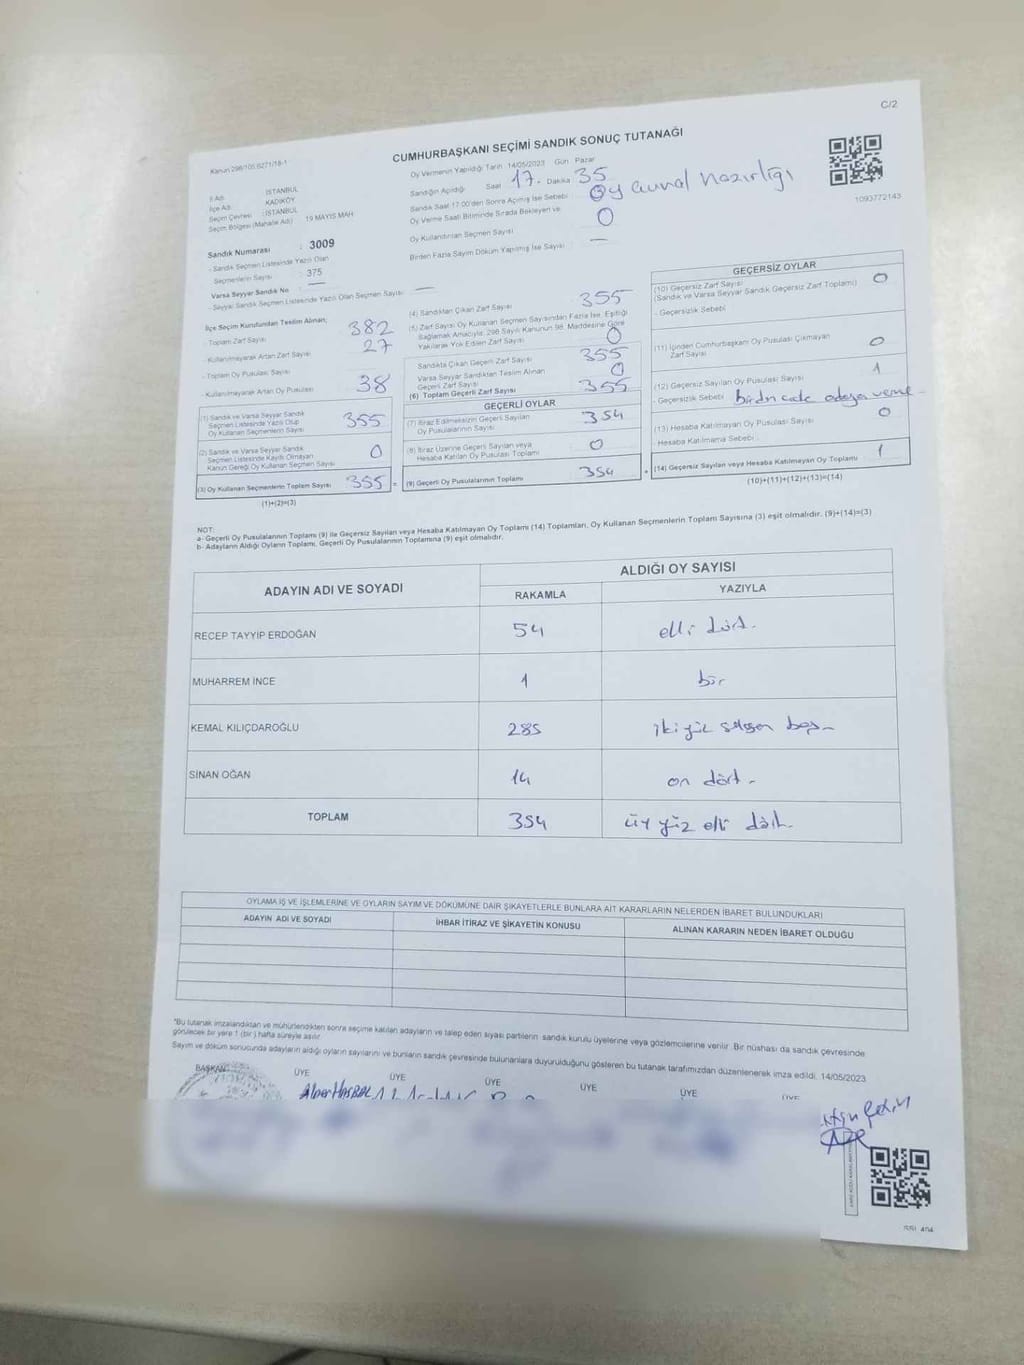 C/2
Kanun 298/105,6271/18-1
CUMHURBAŞKANI SEÇİMİ SANDIK SONUÇ TUTANAĞI
İl Adı : İSTANBUL
İlçe Adı : KADIKÖY
Seçim Çevresi : İSTANBUL
Seçim Bölgesi (Mahalle Adı) : 19 MAYIS MAH
Sandık Numarası : 3009
- Sandık Seçmen Listesinde Yazılı Olan
Seçmenlerin Sayısı : 375
Varsa Seyyar Sandık No : —
- Seyyar Sandık Seçmen Listesinde Yazılı Olan Seçmen Sayısı : —
Oy Vermenin Yapıldığı Tarih 14/05/2023 Gün Pazar
Sandığın Açıldığı Saat 17. Dakika 35
Sandık Saat 17:00'den Sonra Açılmış İse Sebebi Oy hazırlığı
Oy Verme Saati Bitiminde Sırada Bekleyen ve
Oy Kullandırılan Seçmen Sayısı 0
Birden Fazla Sayım Döküm Yapılmış İse Sayısı —
1093772143
İlçe Seçim Kurulundan Teslim Alınan;
- Toplam Zarf Sayısı 382
- Kullanılmayarak Artan Zarf Sayısı 27
- Toplam Oy Pusulası Sayısı
- Kullanılmayarak Artan Oy Pusulası 38
(1) Sandık ve Varsa Seyyar Sandık
Seçmen Listesinde Yazılı Olup
Oy Kullanan Seçmenlerin Sayısı 355
(2) Sandık ve Varsa Seyyar Sandık
Seçmen Listesinde Kayıtlı Olmayan
Kanun Gereği Oy Kullanan Seçmen Sayısı 0
(3) Oy Kullanan Seçmenlerin Toplam Sayısı 355 =
(1)+(2)=(3)
(4) Sandıktan Çıkan Zarf Sayısı 355
(5) Zarf Sayısı Oy Kullanan Seçmen Sayısından Fazla İse, Eşitliği
Sağlamak Amacıyla; 298 Sayılı Kanunun 98. Maddesine Göre
Yakılarak Yok Edilen Zarf Sayısı 0
Sandıkta Çıkan Geçerli Zarf Sayısı 355
Varsa Seyyar Sandıktan Teslim Alınan
Geçerli Zarf Sayısı 0
(6) Toplam Geçerli Zarf Sayısı 355
GEÇERLİ OYLAR
(7) İtiraz Edilmeksizin Geçerli Sayılan
Oy Pusulalarının Sayısı 354
(8) İtiraz Üzerine Geçerli Sayılan veya
Hesaba Katılan Oy Pusulası Toplamı 0
(9) Geçerli Oy Pusulalarının Toplamı 354 +
GEÇERSİZ OYLAR
(10) Geçersiz Zarf Sayısı
(Sandık ve Varsa Seyyar Sandık Geçersiz Zarf Toplamı) 0
- Geçersizlik Sebebi
(11) İçinden Cumhurbaşkanı Oy Pusulası Çıkmayan
Zarf Sayısı 0
(12) Geçersiz Sayılan Oy Pusulası Sayısı 1
- Geçersizlik Sebebi adaya verme
(13) Hesaba Katılmayan Oy Pusulası Sayısı 0
- Hesaba Katılmama Sebebi
(14) Geçersiz Sayılan veya Hesaba Katılmayan Oy Toplamı 1
(10)+(11)+(12)+(13)=(14)
NOT:
a- Geçerli Oy Pusulalarının Toplamı (9) ile Geçersiz Sayılan veya Hesaba Katılmayan Oy Toplamı (14) Toplamları, Oy Kullanan Seçmenlerin Toplam Sayısına (3) eşit olmalıdır. (9)+(14)=(3)
b- Adayların Aldığı Oyların Toplamı, Geçerli Oy Pusulalarının Toplamına (9) eşit olmalıdır.
ADAYIN ADI VE SOYADI ALDIĞI OY SAYISI
RAKAMLA YAZIYLA
RECEP TAYYİP ERDOĞAN 54 elli dört.
MUHARREM İNCE 1 bir
KEMAL KILIÇDAROĞLU 285 iki yüz seksen beş
SİNAN OĞAN 14 on dört
TOPLAM 354 üç yüz elli dört
OYLAMA İŞ VE İŞLEMLERİNE VE OYLARIN SAYIM VE DÖKÜMÜNE DAİR ŞİKAYETLERLE BUNLARA AİT KARARLARIN NELERDEN İBARET BULUNDUKLARI
ADAYIN ADI VE SOYADI İHBAR İTİRAZ VE ŞİKAYETİN KONUSU ALINAN KARARIN NEDEN İBARET OLDUĞU
*Bu tutanak imzalandıktan ve mühürlendikten sonra seçime katılan adayların ve talep eden siyasi partilerin sandık kurulu üyelerine veya gözlemcilerine verilir. Bir nüshası da sandık çevresinde
görülecek bir yere 1 (bir) hafta süreyle asılır.
Sayım ve döküm sonucunda adayların aldığı oyların sayılarını ve bunların sandık çevresinde bulunanlara duyurulduğunu gösteren bu tutanak tarafımızdan düzenlenerek imza edildi. 14/05/2023
BAŞKAN ÜYE ÜYE ÜYE ÜYE ÜYE ÜYE